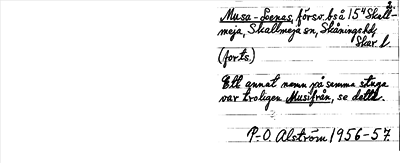 2.
Musa-Loenas, försv. bså 15⁴ Skall-
meja, Skallmeja sn, Skånings hd,
Skar. l.
(forts.)
Ett annat namn på samma stuga
var troligen Musifrån, se detta.
P-O. Alström 1956-57.